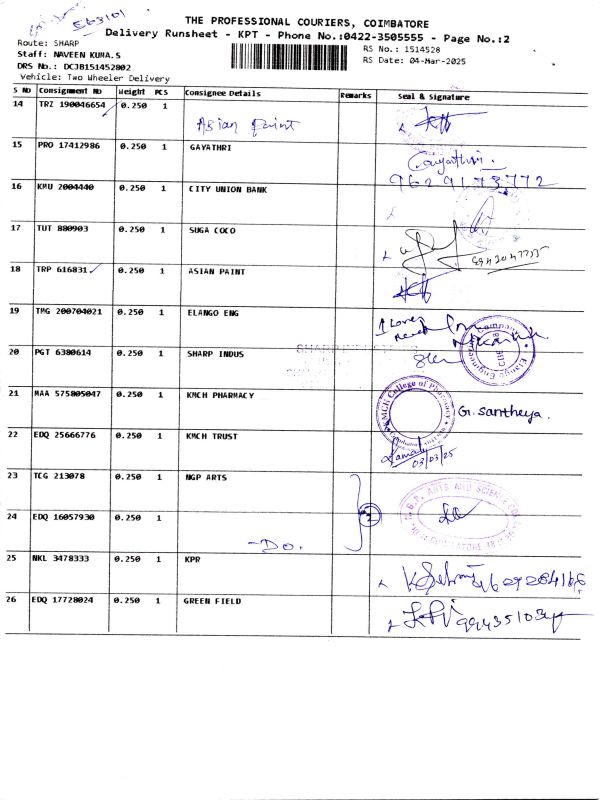 563101
THE PROFESSIONAL COURIERS, COIMBATORE
Delivery Runsheet - KPT - Phone No.:0422-3505555 - Page No.:2
Route: SHARP
RS No.: 1514528
Staff: NAVEEN KUMA.S
RS Date: 04-Mar-2025
DRS No.: DCJB151452802
Vehicle: Two Wheeler Delivery
S No Consignment No Weight PCS Consignee Details Remarks Seal & signature
14 TRZ 190046654 0.250 1
Asian Paint
15 PRO 17412986 0.250 1 GAYATHRI
Gayathri.
9629173772
16 KMU 2004440 0.250 1 CITY UNION BANK
17 TUT 880903 0.250 1 SUGA COCO
18 TRP 616831 0.250 1 ASIAN PAINT
19 TMG 200704021 0.250 1 ELANGO ENG
20 PGT 6380614 0.250 1 SHARP INDUS
21 MAA 575805047 0.250 1 KMCH PHARMACY
KMCH College of Pharmacy
G. Santheya.
22 EDQ 25666776 0.250 1 KMCH TRUST
03/03/25
23 TCG 213078 0.250 1 NGP ARTS
ARTS AND SCIENCE
2
24 EDQ 16057930 0.250 1
-Do.
25 NKL 3478333 0.250 1 KPR
26 EDQ 17728024 0.250 1 GREEN FIELD